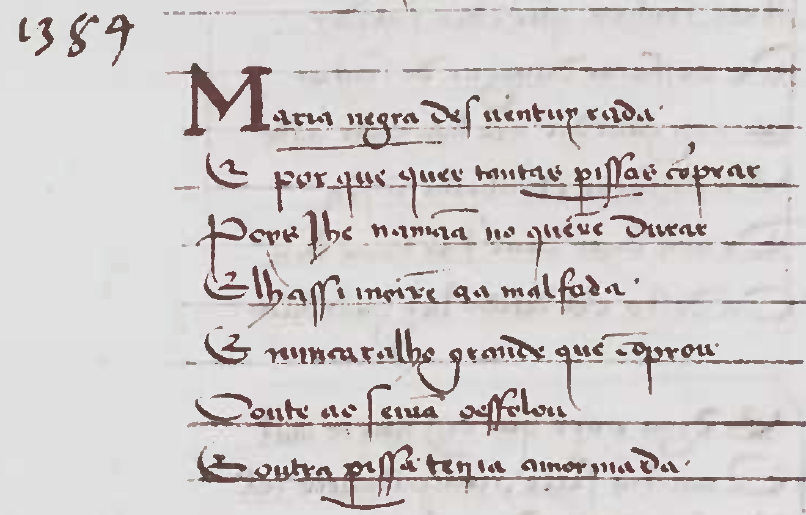 1384
Maria negra des uentuyrada
E por que quer tantas pissas cōprar
Poys lhe na mãa nō quere durar
Elhassi moirē aa malfada
E nuncaralho grande que cōprou
Oonte ao serãa oesfolou
Eoutra pissa tenia amormada